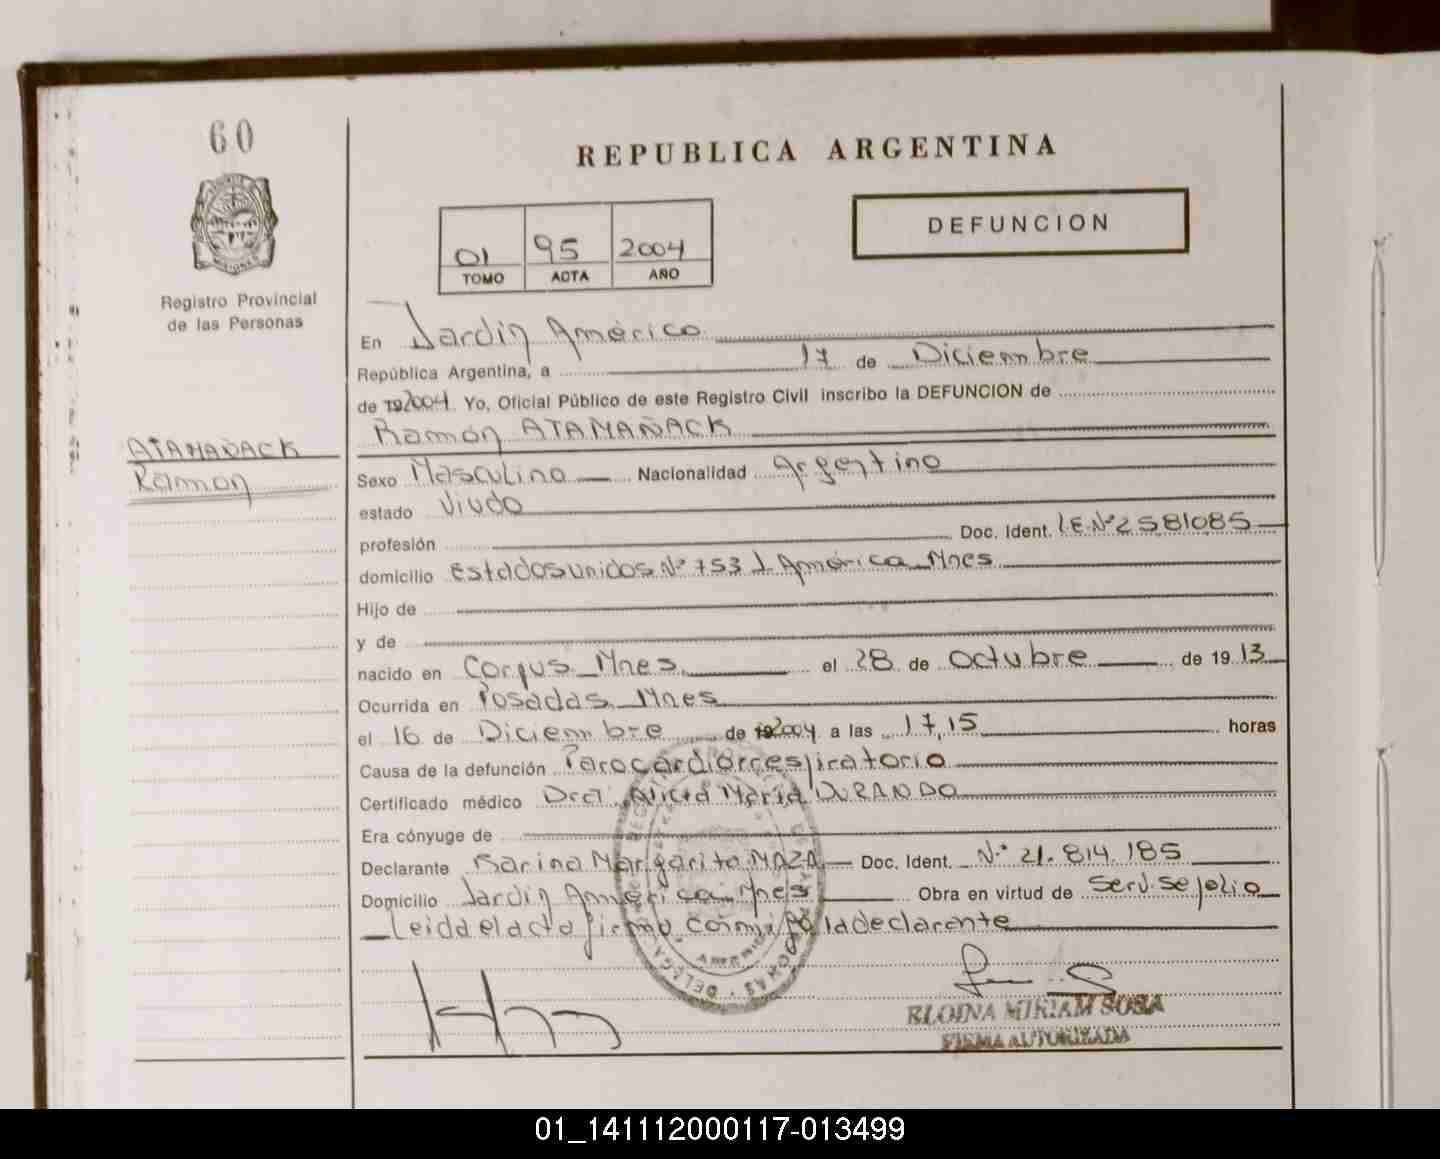 60
REPUBLICA ARGENTINA
DEFUNCION
01 95 2004
TOMO ACTA AÑO
Registro Provincial
de las Personas
En Jardín América
República Argentina, a 17 de Diciembre
de 192004 Yo, Oficial Público de este Registro Civil inscribo la DEFUNCION de
Ramón ATAMAÑACK
ATAMAÑACK
Ramón
Sexo Masculino Nacionalidad Argentino
estado Viudo
profesión Doc. Ident. L.E.Nº 2581085
domicilio Estados unidos Nº 753 J. América Mnes
Hijo de
y de
nacido en Corpus Mnes el 28 de octubre de 1913
Ocurrida en Posadas Mnes
el 16 de Diciembre de 192004 a las 17,15 horas
Causa de la defunción Parocardiorrespiratorio
Certificado médico Dra. Alicia María DURANDO
Era cónyuge de
Declarante Karina Margarita MAZA Doc. Ident. Nº 21.814.185
Domicilio Jardín América Mnes Obra en virtud de Serv. Sepelio
Leida el acta firma conmigo la declarante
ELOINA MIRIAM SOSA
FIRMA AUTORIZADA
01_141112000117-013499